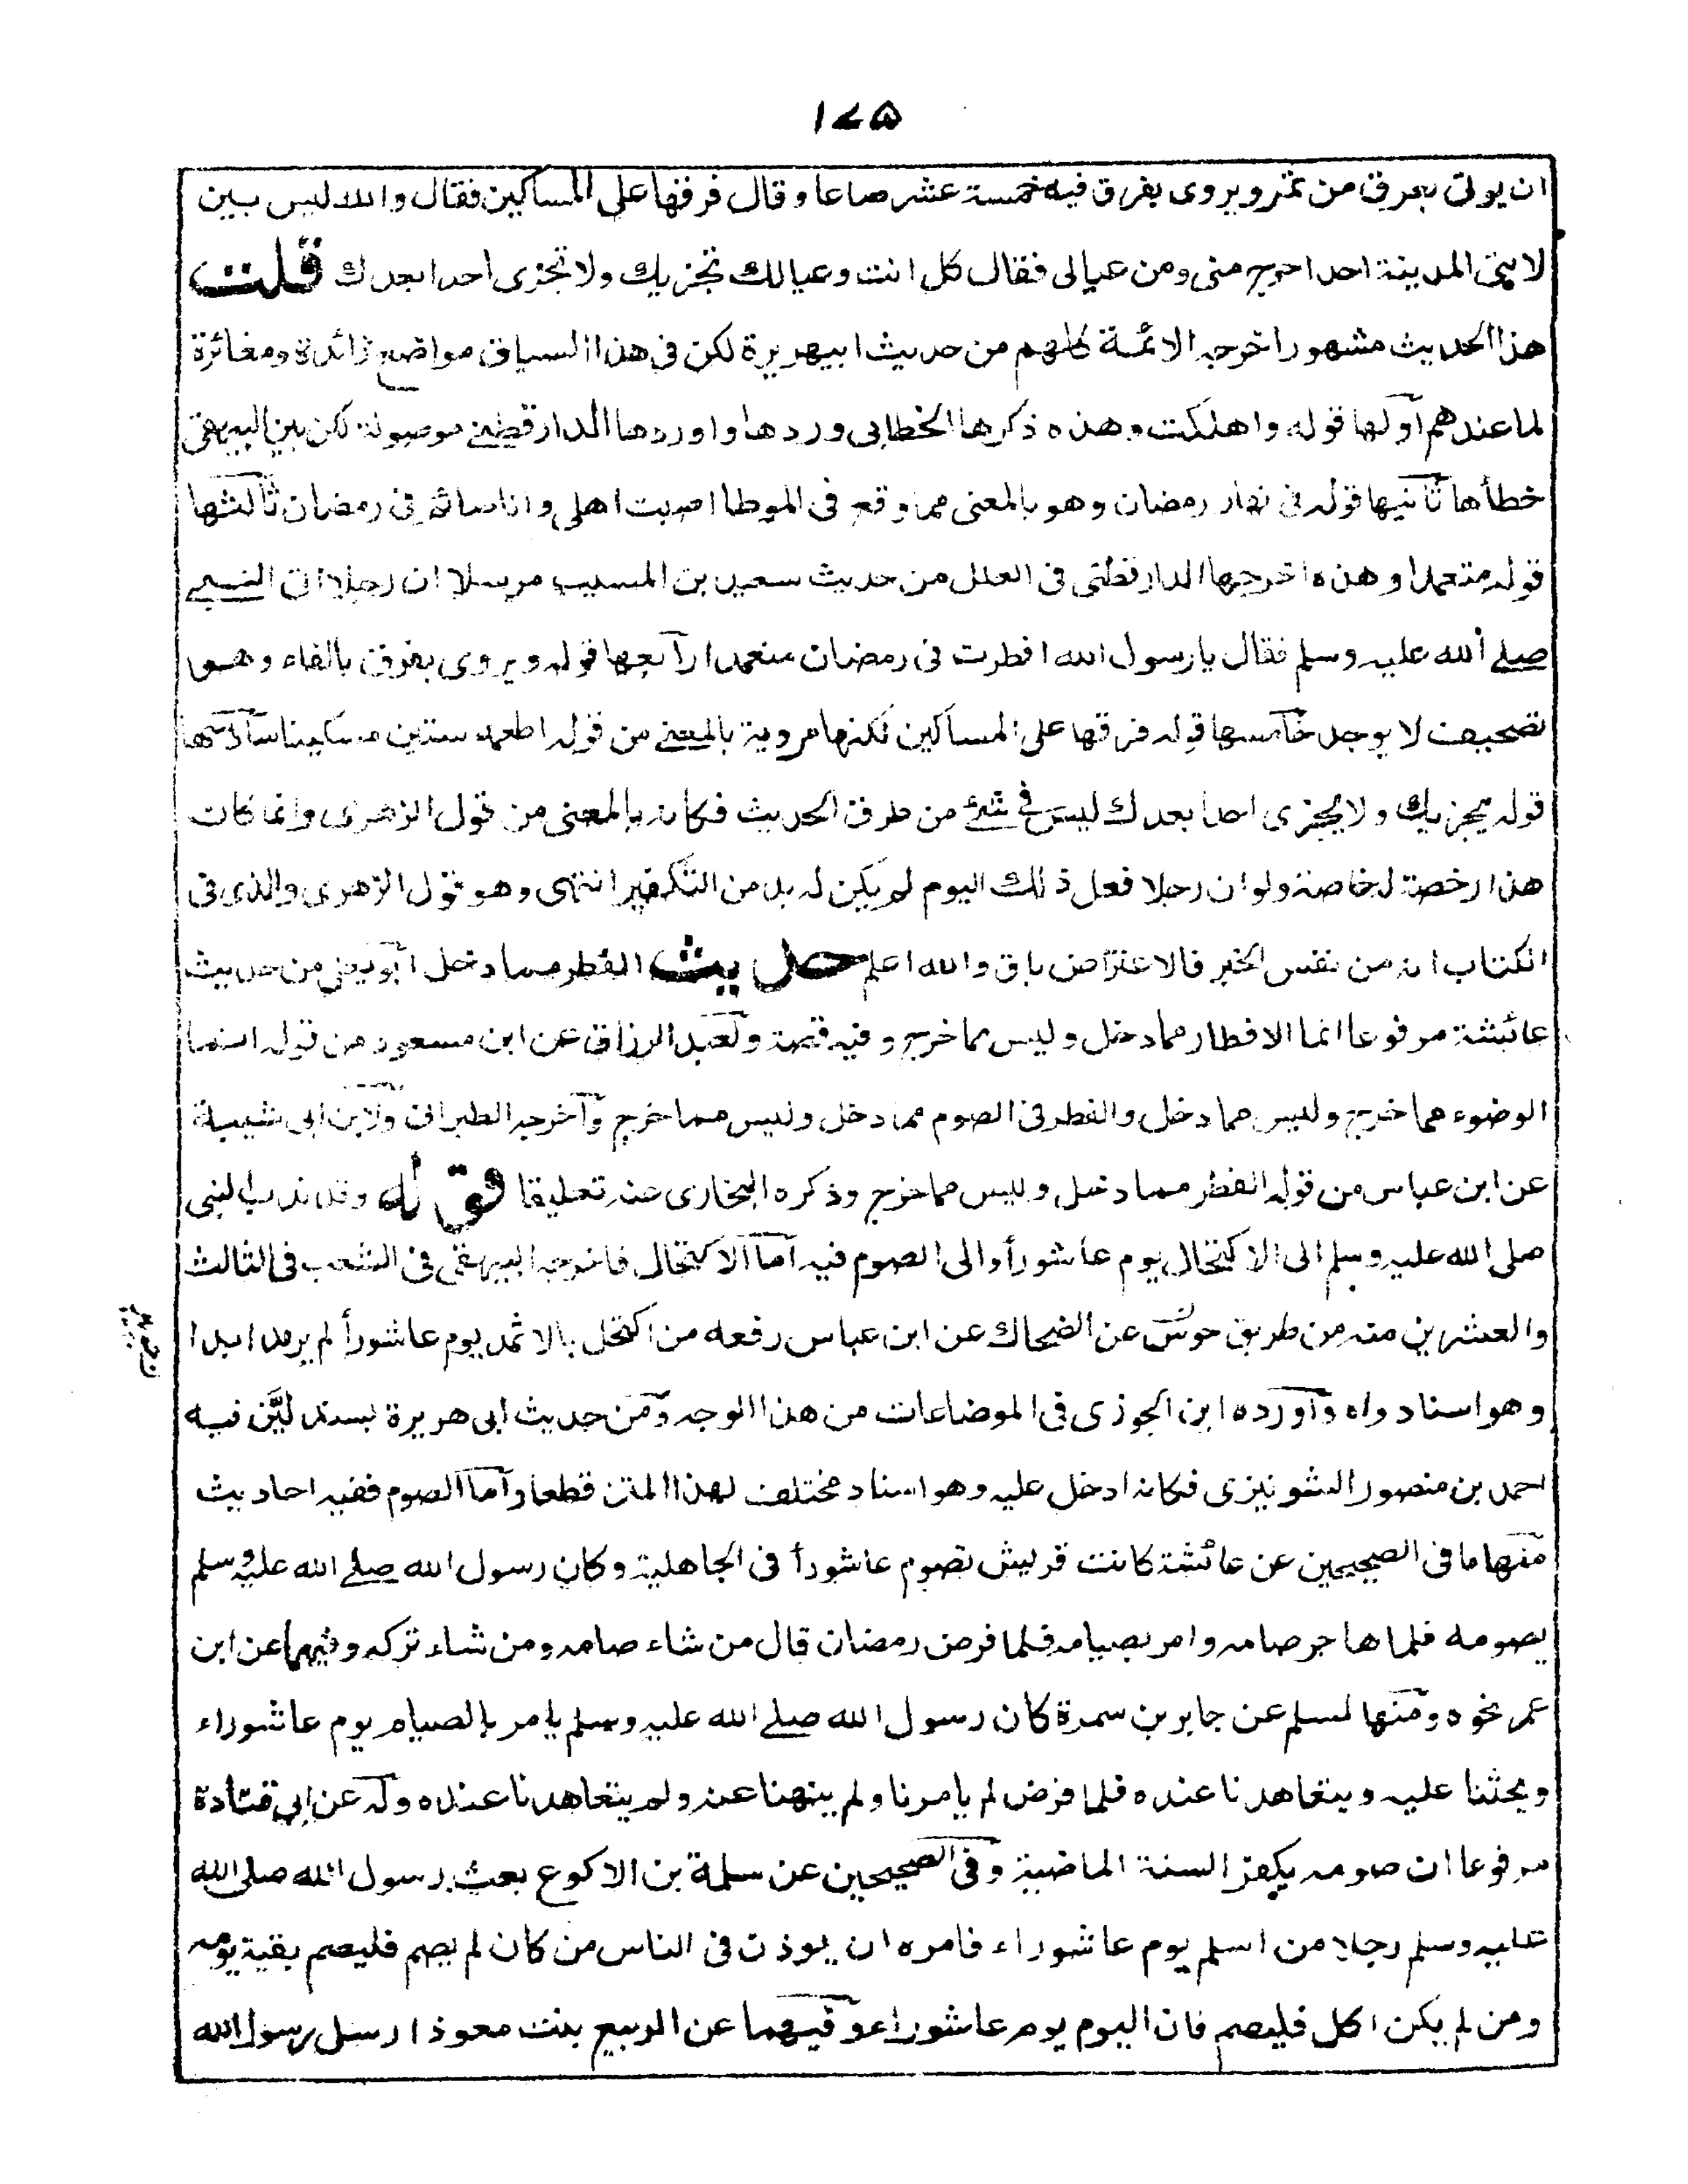 ١٧٥
ان يوتى بعرق من تمر ويروى بفرق فيه خمسة عشر صاعا وقال فرقها على المساكين فقال والله ليس بين
لابتى المدينة احدا حوج منى ومن عيالى فقال كل انت وعيالك تجزيك ولا تجزى احدا بعدك قلت
هذا الحديث مشهور اخرجه الائمة كلهم من حديث ابيهريرة لكن فى هذا السياق مواضع زائدة ومغائرة
لما عندهم اولها قوله واهلكت وهذه ذكرها الخطابى وردها واوردها الدارقطنى موصولة لكن بين البيهقى
خطأها ثانيها قوله فى نهار رمضان وهو بالمعنى مما وقع فى الموطا اصبت اهلى وانا صائم فى رمضان ثالثها
قوله متعمدا وهذه اخرجها الدارقطنى فى العلل من حديث سعيد بن المسيب مرسلا ان رجلا اتى النبى
صلى الله عليه وسلم فقال يا رسول الله افطرت فى رمضان متعمدا رابعها قوله ويروى بفرق بالفاء وهو
تصحيف لا يوجد خامسها قوله فرقها على المساكين لكنها مروية بالمعنى من قوله اطعمه ستين مسكينا سادسها
قوله يجزيك ولا يجزى احدا بعدك ليس فى شئ من طرق الحديث فكانه بالمعنى من قول الزهرى وانما كان
هذا رخصة له خاصة ولو ان رجلا فعل ذلك اليوم لم يكن له بد من التكفير انتهى وهو قول الزهرى والذى فى
الكتاب انه من نفس الخبر فالاعتراض باق والله اعلم حديث الفطر مما دخل ابو يعلى من حديث
عائشة مرفوعا انما الافطار مما دخل وليس مما خرج وفيه قصة ولعبد الرزاق عن ابن مسعود من قوله انما
الوضوء مما خرج وليس مما دخل والفطر فى الصوم مما دخل وليس مما خرج واخرجه الطبرانى ولابن ابى شيبة
عن ابن عباس من قوله الفطر مما دخل وليس مما خرج وذكره البخارى عنه تعليقا قوله وقد ندب النبى
صلى الله عليه وسلم الى الاكتحال يوم عاشورأ والى الصوم فيه اما الاكتحال فاخرجه البيهقى فى الشعب فى الثالث
والعشرين منه من طريق جويبر عن الضحاك عن ابن عباس رفعه من اكتحل بالاثمد يوم عاشورأ لم يرمد ابدا
وهو اسناد واه واورده ابن الجوزى فى الموضاعات من هذا الوجه ومن حديث ابى هريرة بسند لين فيه
احمد بن منصور الشونيزى فكانه ادخل عليه وهو اسناد مختلف لهذا المتن قطعا واما الصوم ففيه احاديث
منها ما فى الصحيحين عن عائشة كانت قريش تصوم عاشورأ فى الجاهلية وكان رسول الله صلى الله عليه وسلم
يصومه فلما هاجر صامه وامر بصيامه فلما فرض رمضان قال من شاء صامه ومن شاء تركه وفيهما عن ابن
عمر نحوه ومنها لمسلم عن جابر بن سمرة كان رسول الله صلى الله عليه وسلم يامر بالصيام يوم عاشوراء
ويحثنا عليه ويتعاهدنا عنده فلما فرض لم يامرنا ولم ينهنا عنه ولم يتعاهدنا عنده وله عن ابى قتادة
مرفوعا ان صومه يكفر السنة الماضية وفى الصحيحين عن سلمة بن الاكوع بعث رسول الله صلى الله
عليه وسلم رجلا من اسلم يوم عاشوراء فامره ان يوذن فى الناس من كان لم يصم فليصم بقية يومه
ومن لم يكن اكل فليصم فان اليوم يوم عاشوراء وفيهما عن الربيع بنت معوذ ارسل رسول الله